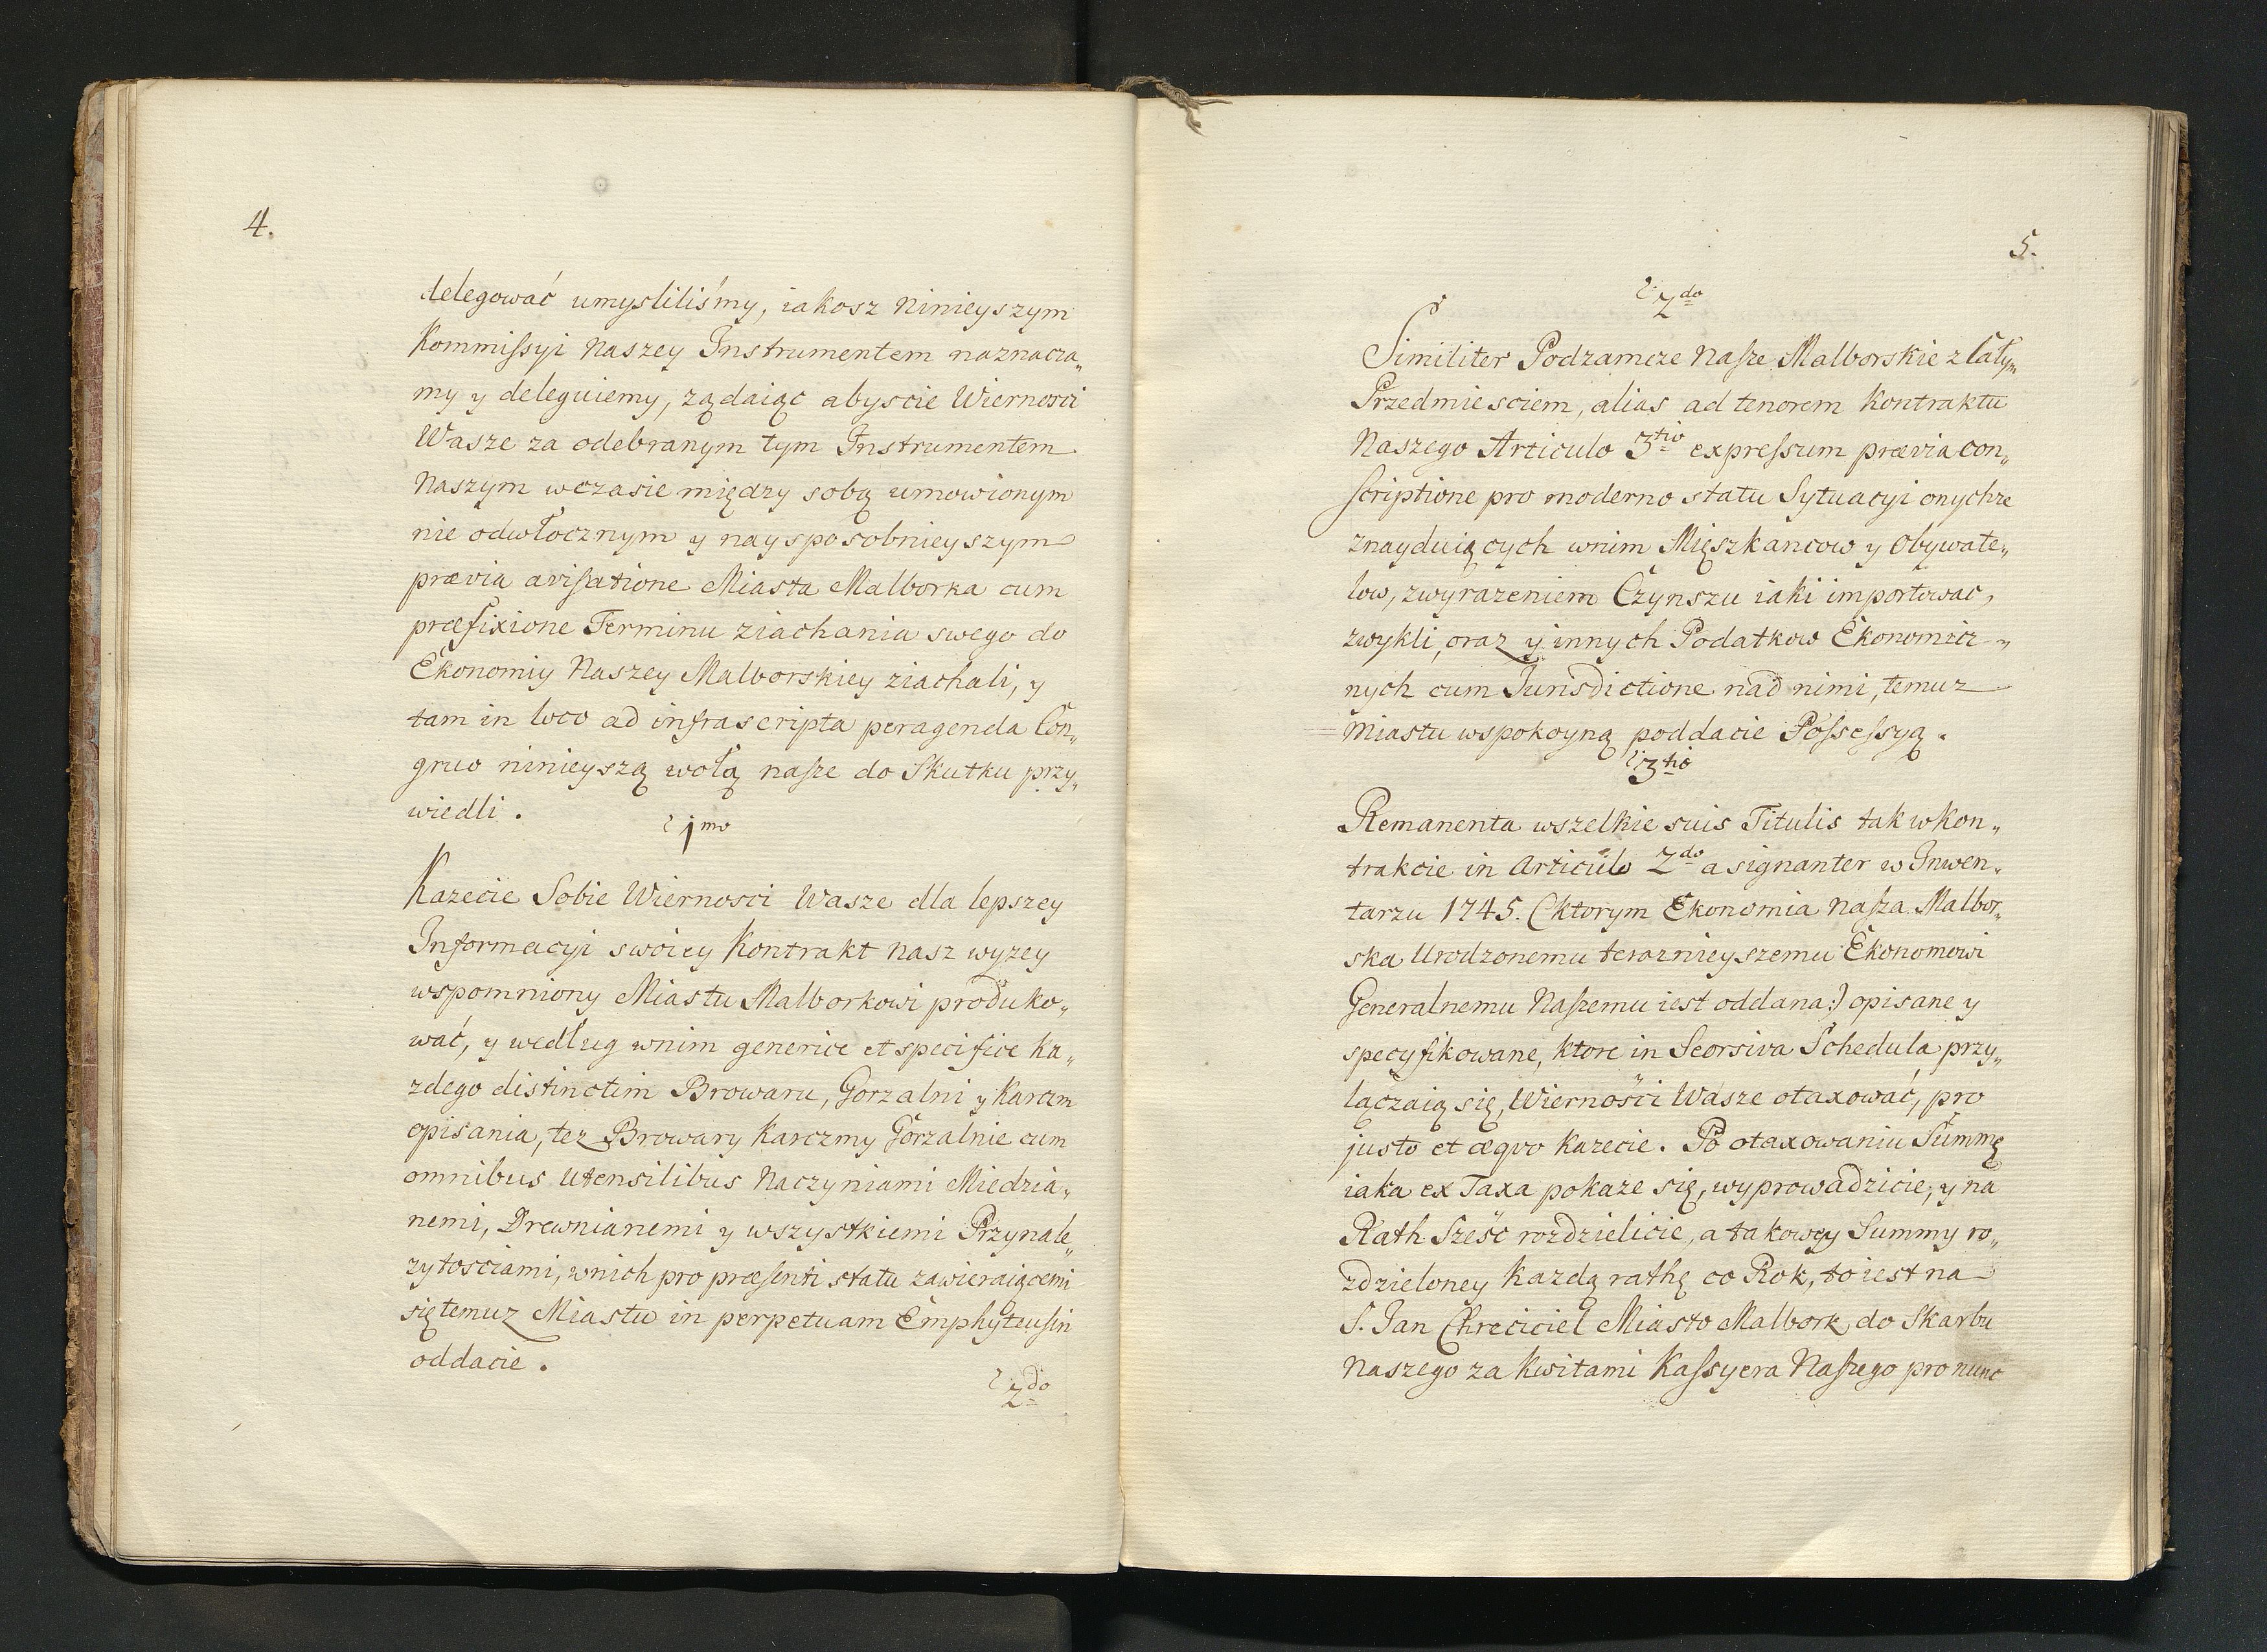 4.
delegować umyśliliśmy, iakosz Ninieyszym
Kommiſsyi Naszey Instrumentem naznacza„
my y deleguiemy, ządaiąc abyscie Wiernosci
Wasze za odebranym tym Instrumentem
Naszym wczasie między sobą umowionym
nie odwłocznym y naysposobnieyszym
prævia aviſatione Miasta Malborka cum
præfixione Terminu ziachania swego do
Ekonomiy Naszey Malborskiey ziachali, y
tam in loco ad infrascripta peragenda Con„
gruo ninieyszą wolą naſze do Skutku przy„
wiedli.
1mo
Kazecie Sobie Wiernosci Wasze dla lepszey
Informacyi swoiey Kontrakt nasz wyzey
wspomniony Miastu Malborkowi produko„
wać, y według wnim generice et specifice ka„
zdego distinctim Browaru, Gorzalni y Karczm
opisania, tez Browary Karczmy Gorzalnie cum
omnibus Utensilibus Naczyniami Miedzia„
nemi, Drewnianemi y wszystkiemi Przynale„
zytosciami, wnich pro præſenti statu zawieraiącemi
się temuz Miastu in perpetuam Emphyteuſin
oddacie.
2do
5.
2do
Similiter Podzamcze Naſze Malborskie z Całym
Przedmiesciem, alias ad tenorem Kontraktu
Naszego Articulo 3tio expreſsum prævia con„
scriptione pro moderno statu Sytuacyi onychze
znayduiących wnim Mięszkancow y Obywate„
low, zwyrazeniem Czynszu iaki importowac,
zwykli, oraz y innych Podatkow Ekonomicz„
nych cum Jurisdictione nad nimi, temuz
Miastu wspokoyną poddacie Poſsesſyą.
3tio
Remanenta wszelkie suis Titulis tak w Kon„
trakcie in Articulo 2do a signanter w Inwen„
tarzu 1745. (ktorym Ekonomia Naſza Malbor„
ska Urodzonemu terazniejszemu Ekonomowi
Generalnemu Naſzemu iest oddana:) opisane y
specyfikowane, ktore in Seorsiva Schedula przy„
lączaią się, Wiernosci Wasze otaxować, pro
justo et æquo kazecie. Po otaxowaniu Summę
iaka ex Taxa pokaze się, wyprowadzicie, y na
Rath Sześc rozdzielicie, a takowey Summy ro„
zdzieloney Kazdą rathę co Rok, to iest na
S. Jan Chrzciciel Miasto Malbork do Skarbu
Naszego za Kwitami Kaſsyera Naſzego pro nunc